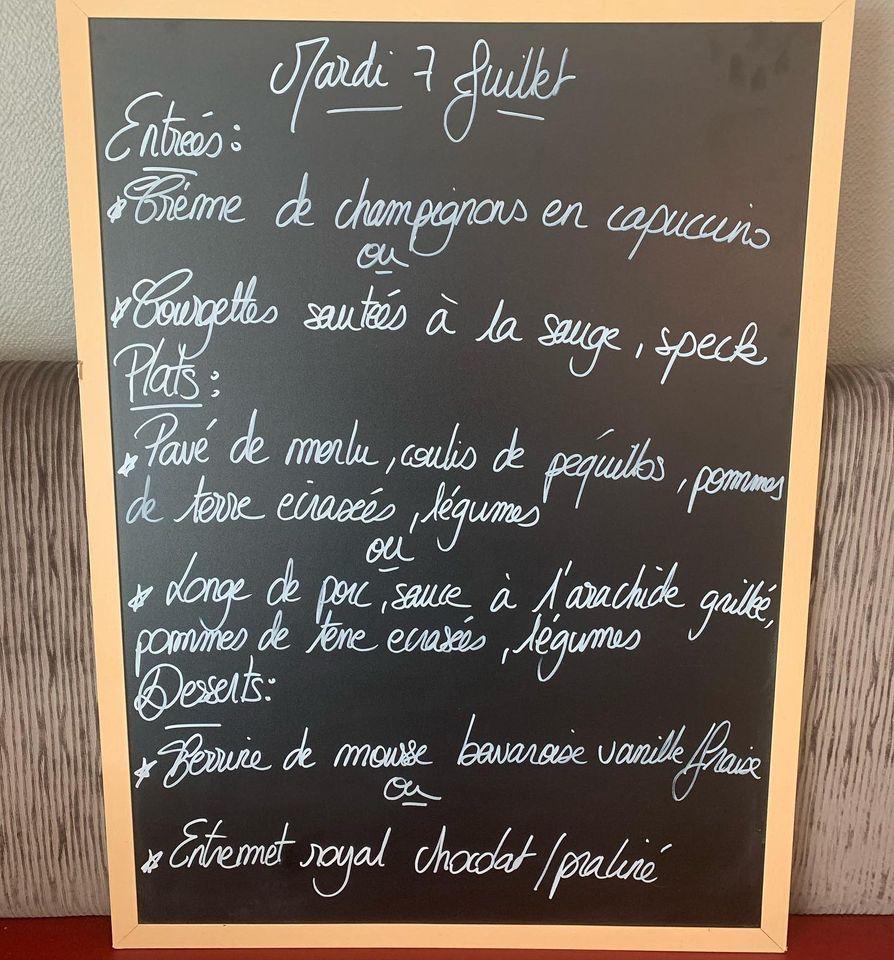 Mardi 7 Juillet
Entrées:
* Crème de champignons en capuccino
ou
* Courgettes sautées à la sauge, speck
Plats:
* Pavé de merlu, coulis de péquillos, pommes
de terre ecrasées, légumes
ou
* Longe de porc, sauce à l'arachide grillée,
pommes de terre ecrasées, légumes
Desserts:
* Verrine de mousse bavaroise vanille/fraise
ou
* Entremet royal chocolat/praliné